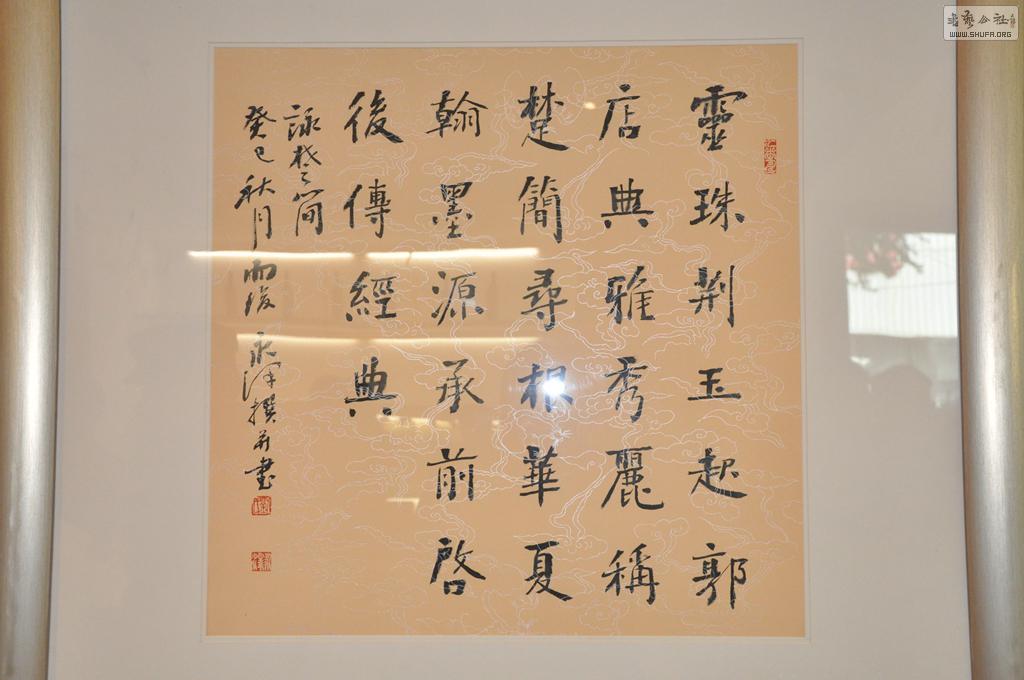 靈珠荆玉起郭
店典雅秀麗稱
楚簡尋根華夏
翰墨源承前啓
後傳經典
詠楚簡
癸巳秋月雨後
永澤撰并書
书艺公社
WWW.SHUFA.ORG